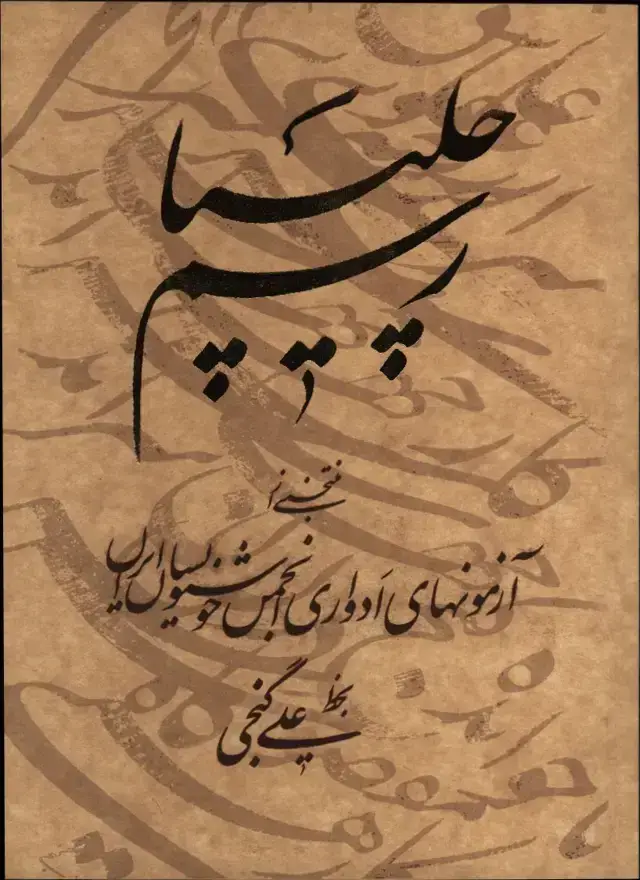 رسم چلیپا
منتخبی از
آزمونهای اَدواری انجمن خوشنویسان ایران
بخط علی گنجی